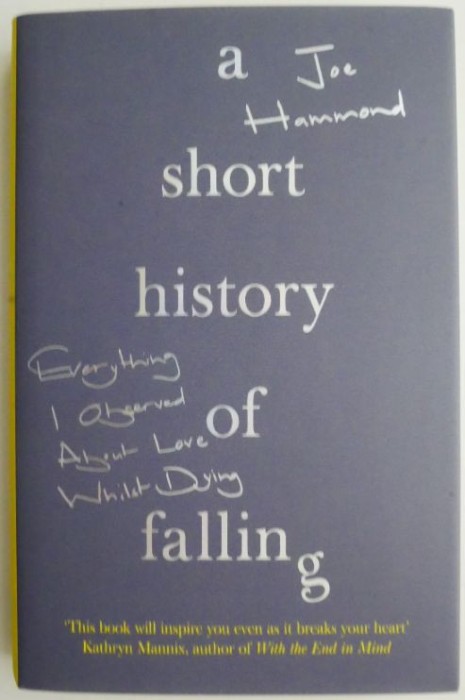 a
Joe
Hammond
short
history
Everything
I Observed
About Love
Whilst Dying
of
falling
'This book will inspire you even as it breaks your heart'
Kathryn Mannix, author of With the End in Mind